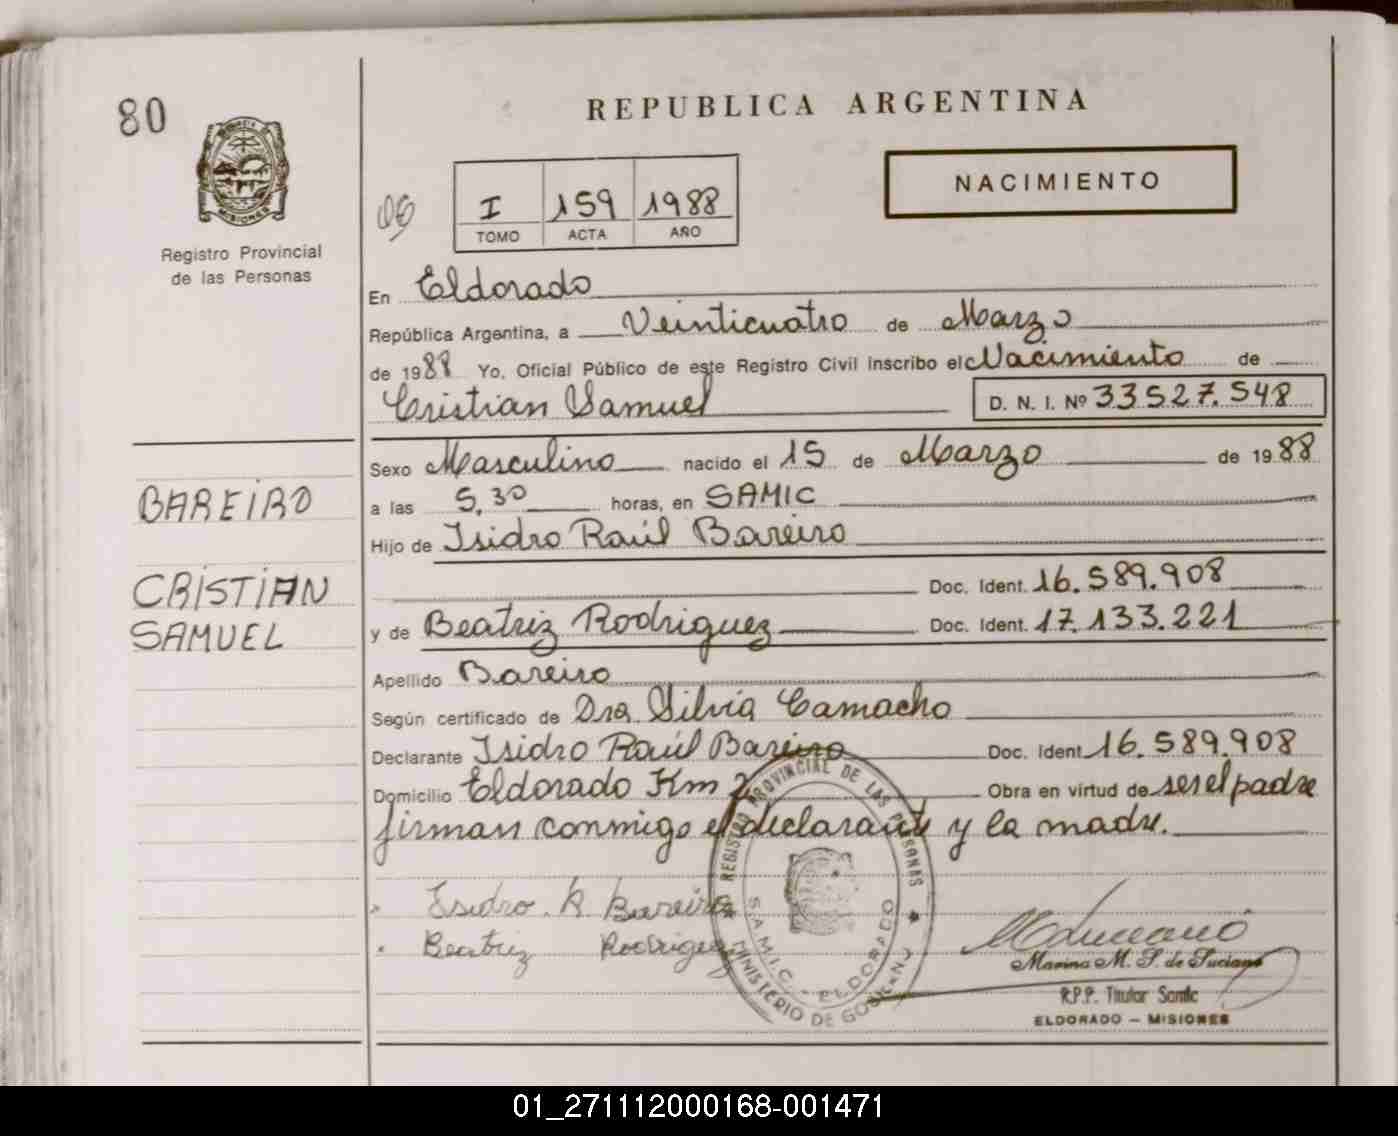 80
REPUBLICA ARGENTINA
MISIONES
Registro Provincial
de las Personas
I 159 1988
TOMO ACTA AÑO
NACIMIENTO
En Eldorado
República Argentina, a Veinticuatro de Marzo
de 1988 Yo, Oficial Público de este Registro Civil inscribo el Nacimiento de
Cristian Samuel D. N. I. Nº 33527.548
Sexo Masculino nacido el 15 de Marzo de 1988
BAREIRO
a las 5,30 horas, en SAMIC
Hijo de Isidro Raúl Bareiro
CRISTIAN
Doc. Ident. 16.589.908
SAMUEL
y de Beatriz Rodriguez Doc. Ident. 17.133.221
Apellido Bareiro
Según certificado de Dra. Silvia Camacho
Declarante Isidro Raúl Bareiro Doc. Ident. 16.589.908
Domicilio Eldorado Km 2 Obra en virtud de ser el padre
firman conmigo el declarante y la madre.
Isidro. R. Bareiro
Beatriz Rodriguez
REGISTRO PROVINCIAL DE LAS PERSONAS
S.A.M.I.C. - ELDORADO
MINISTERIO DE GOBIERNO
Marina M. S. de Luciano
R.P.P. Titular Samic
ELDORADO - MISIONES
01_271112000168-001471